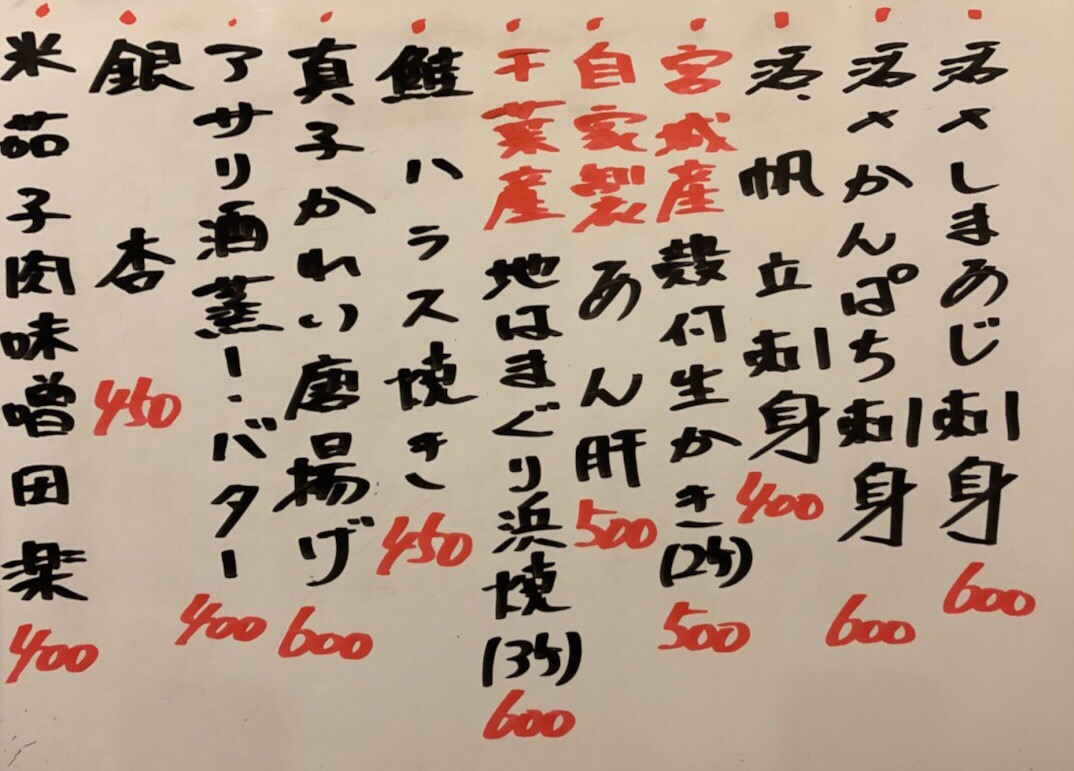 活〆しまあじ刺身 600
活〆かんぱち刺身 600
活帆立刺身 400
宮城産 殻付生かき(2ヶ) 500
自家製 あん肝 500
千葉産 地はまぐり浜焼(3ヶ) 600
鮭ハラス焼き 450
真子かれい唐揚げ 600
アサリ酒蒸 or バター 400
銀杏 450
米茄子肉味噌田楽 400